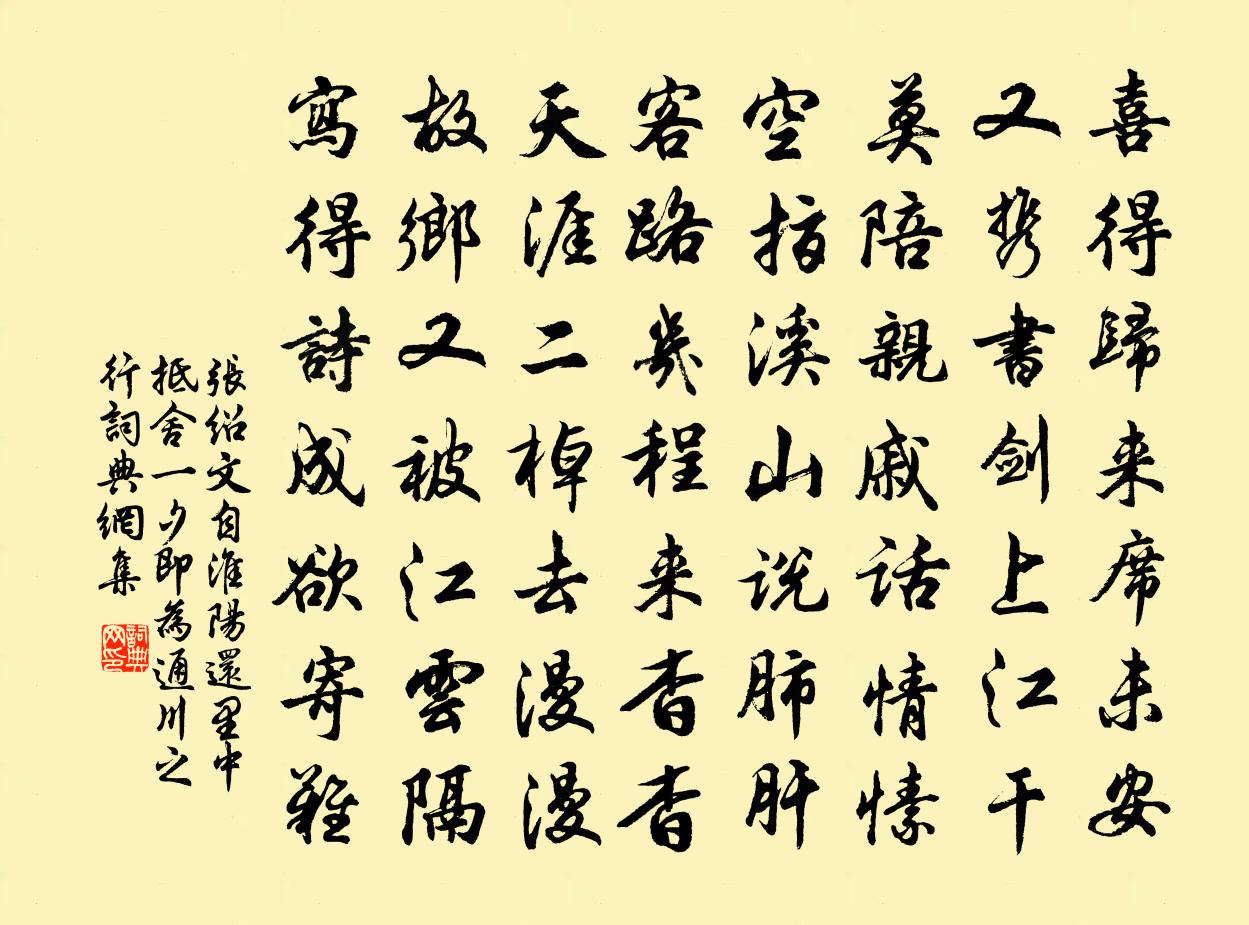 喜得歸来席未安
又携書劍上江干
莫陪親戚話情愫
空指溪山說肺肝
客路幾程来杳杳
天涯二棹去漫漫
故鄉又被江雲隔
寫得詩成欲寄難
張紹文自淮陽還里中
抵舍一夕即為通川之
行詞典網集
詞典网印